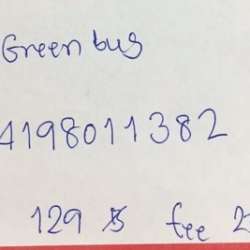 Green bus
4198011382
129 ฿ fee 2